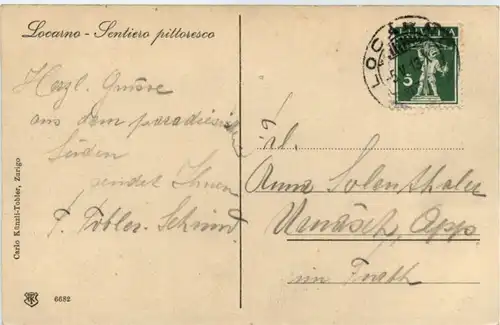 Locarno - Sentiero pittoresco
LOCARNO
HELVETIA
5
Herzl. Grüsse
aus dem paradiesischen
Süden
sendet Ihnen
F. Tobler-Schmid
Frl.
Anna Solenthaler
Urnäsch, App
im Furth
Carlo Künzli-Tobler, Zurigo
6682